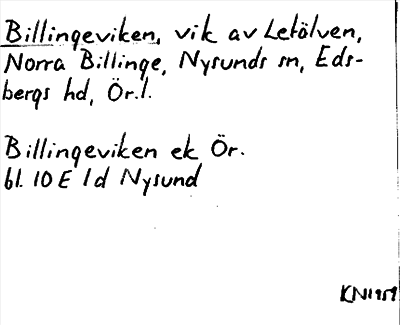 Billingeviken, vik av Letälven,
Norra Billinge, Nysunds sn, Eds-
bergs hd, Ör.l.
Billingeviken ek Ör.
bl. 10 E 1d Nysund
KN1959